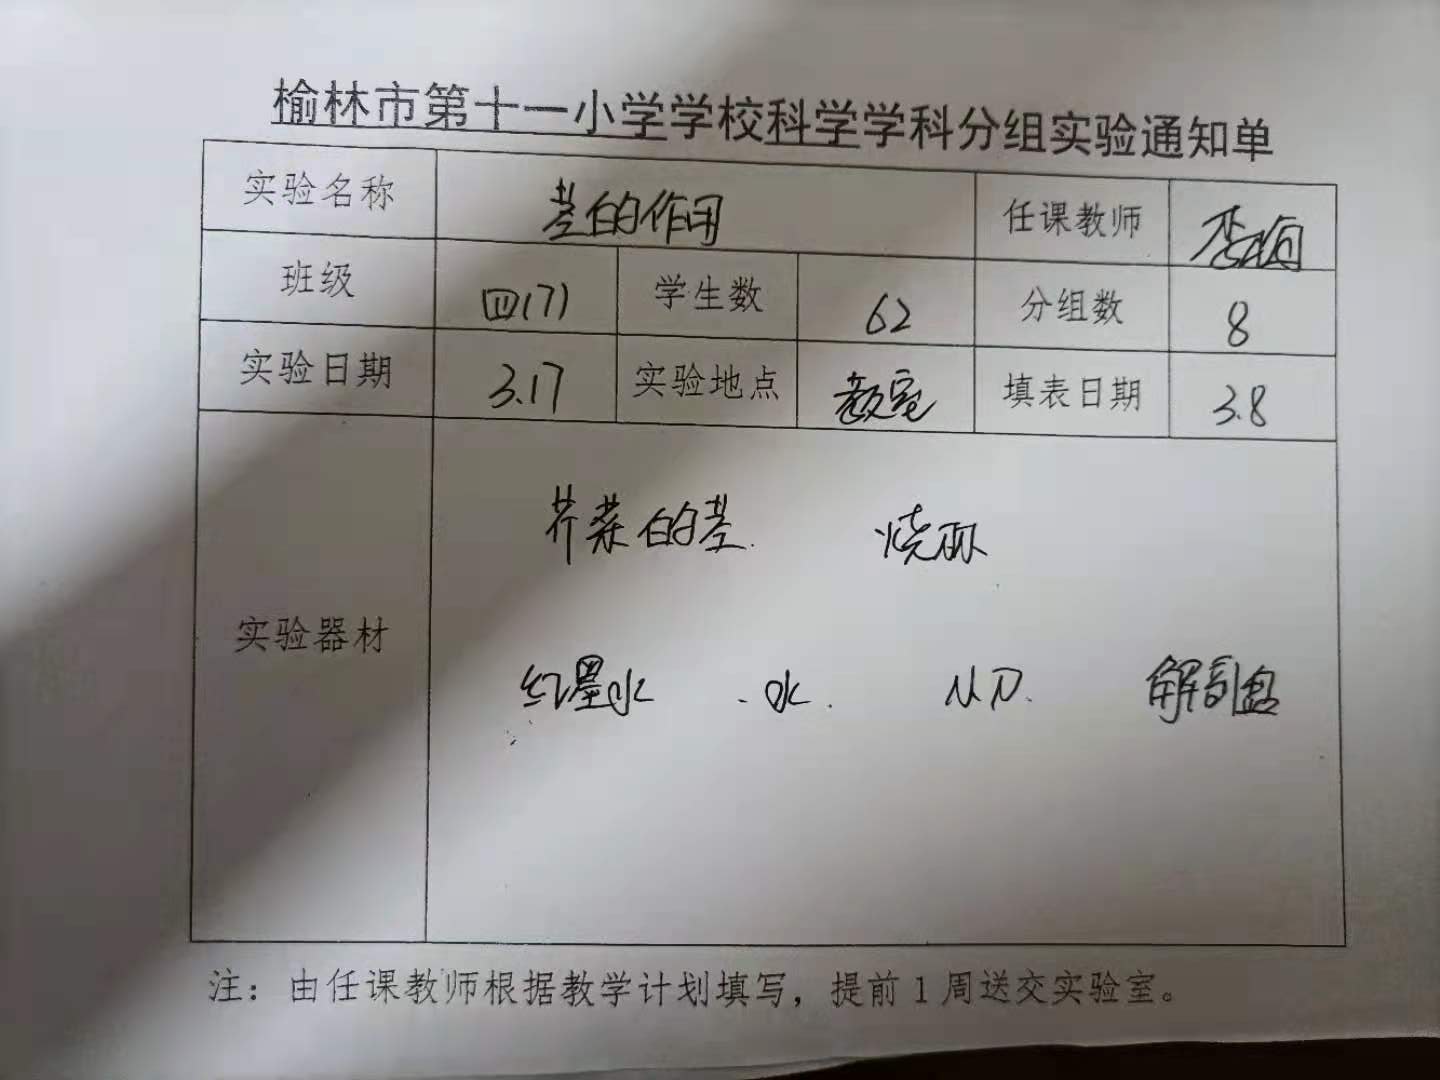 榆林市第十一小学学校科学学科分组实验通知单
实验名称 茎的作用 任课教师
班级 四(7) 学生数 62 分组数 8
实验日期 3.17 实验地点 教室 填表日期 3.8
芹菜的茎 烧杯
实验器材
红墨水 水 小刀 解剖盘
注：由任课教师根据教学计划填写，提前1周送交实验室。